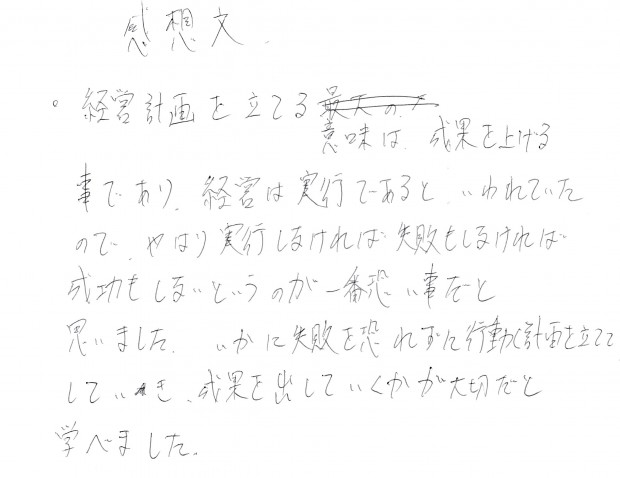 感想文.
。経営計画を立てる最大の
意味は、成果を上げる
事であり、経営は実行であると、いわれていた
ので、やはり実行しなければ失敗もしなければ
成功もしないというのが一番恐い事だと
思いました。いかに失敗を恐れずに行動し計画を立てて
していき、成果を出していくかが大切だと
学べました。